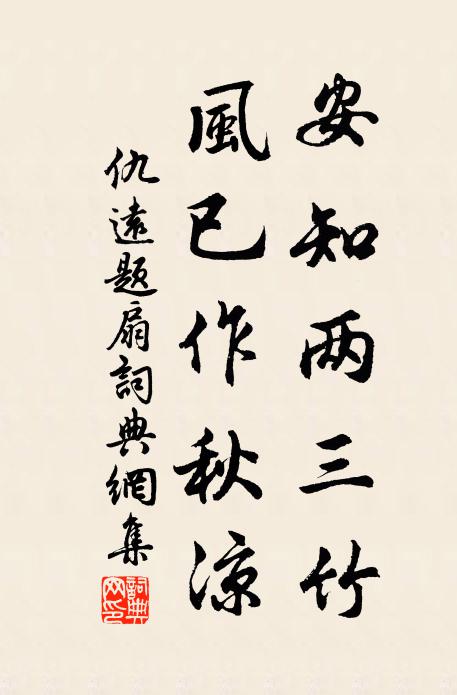 安知两三竹
風已作秋涼
仇遠題扇詞典網集
詞典网印